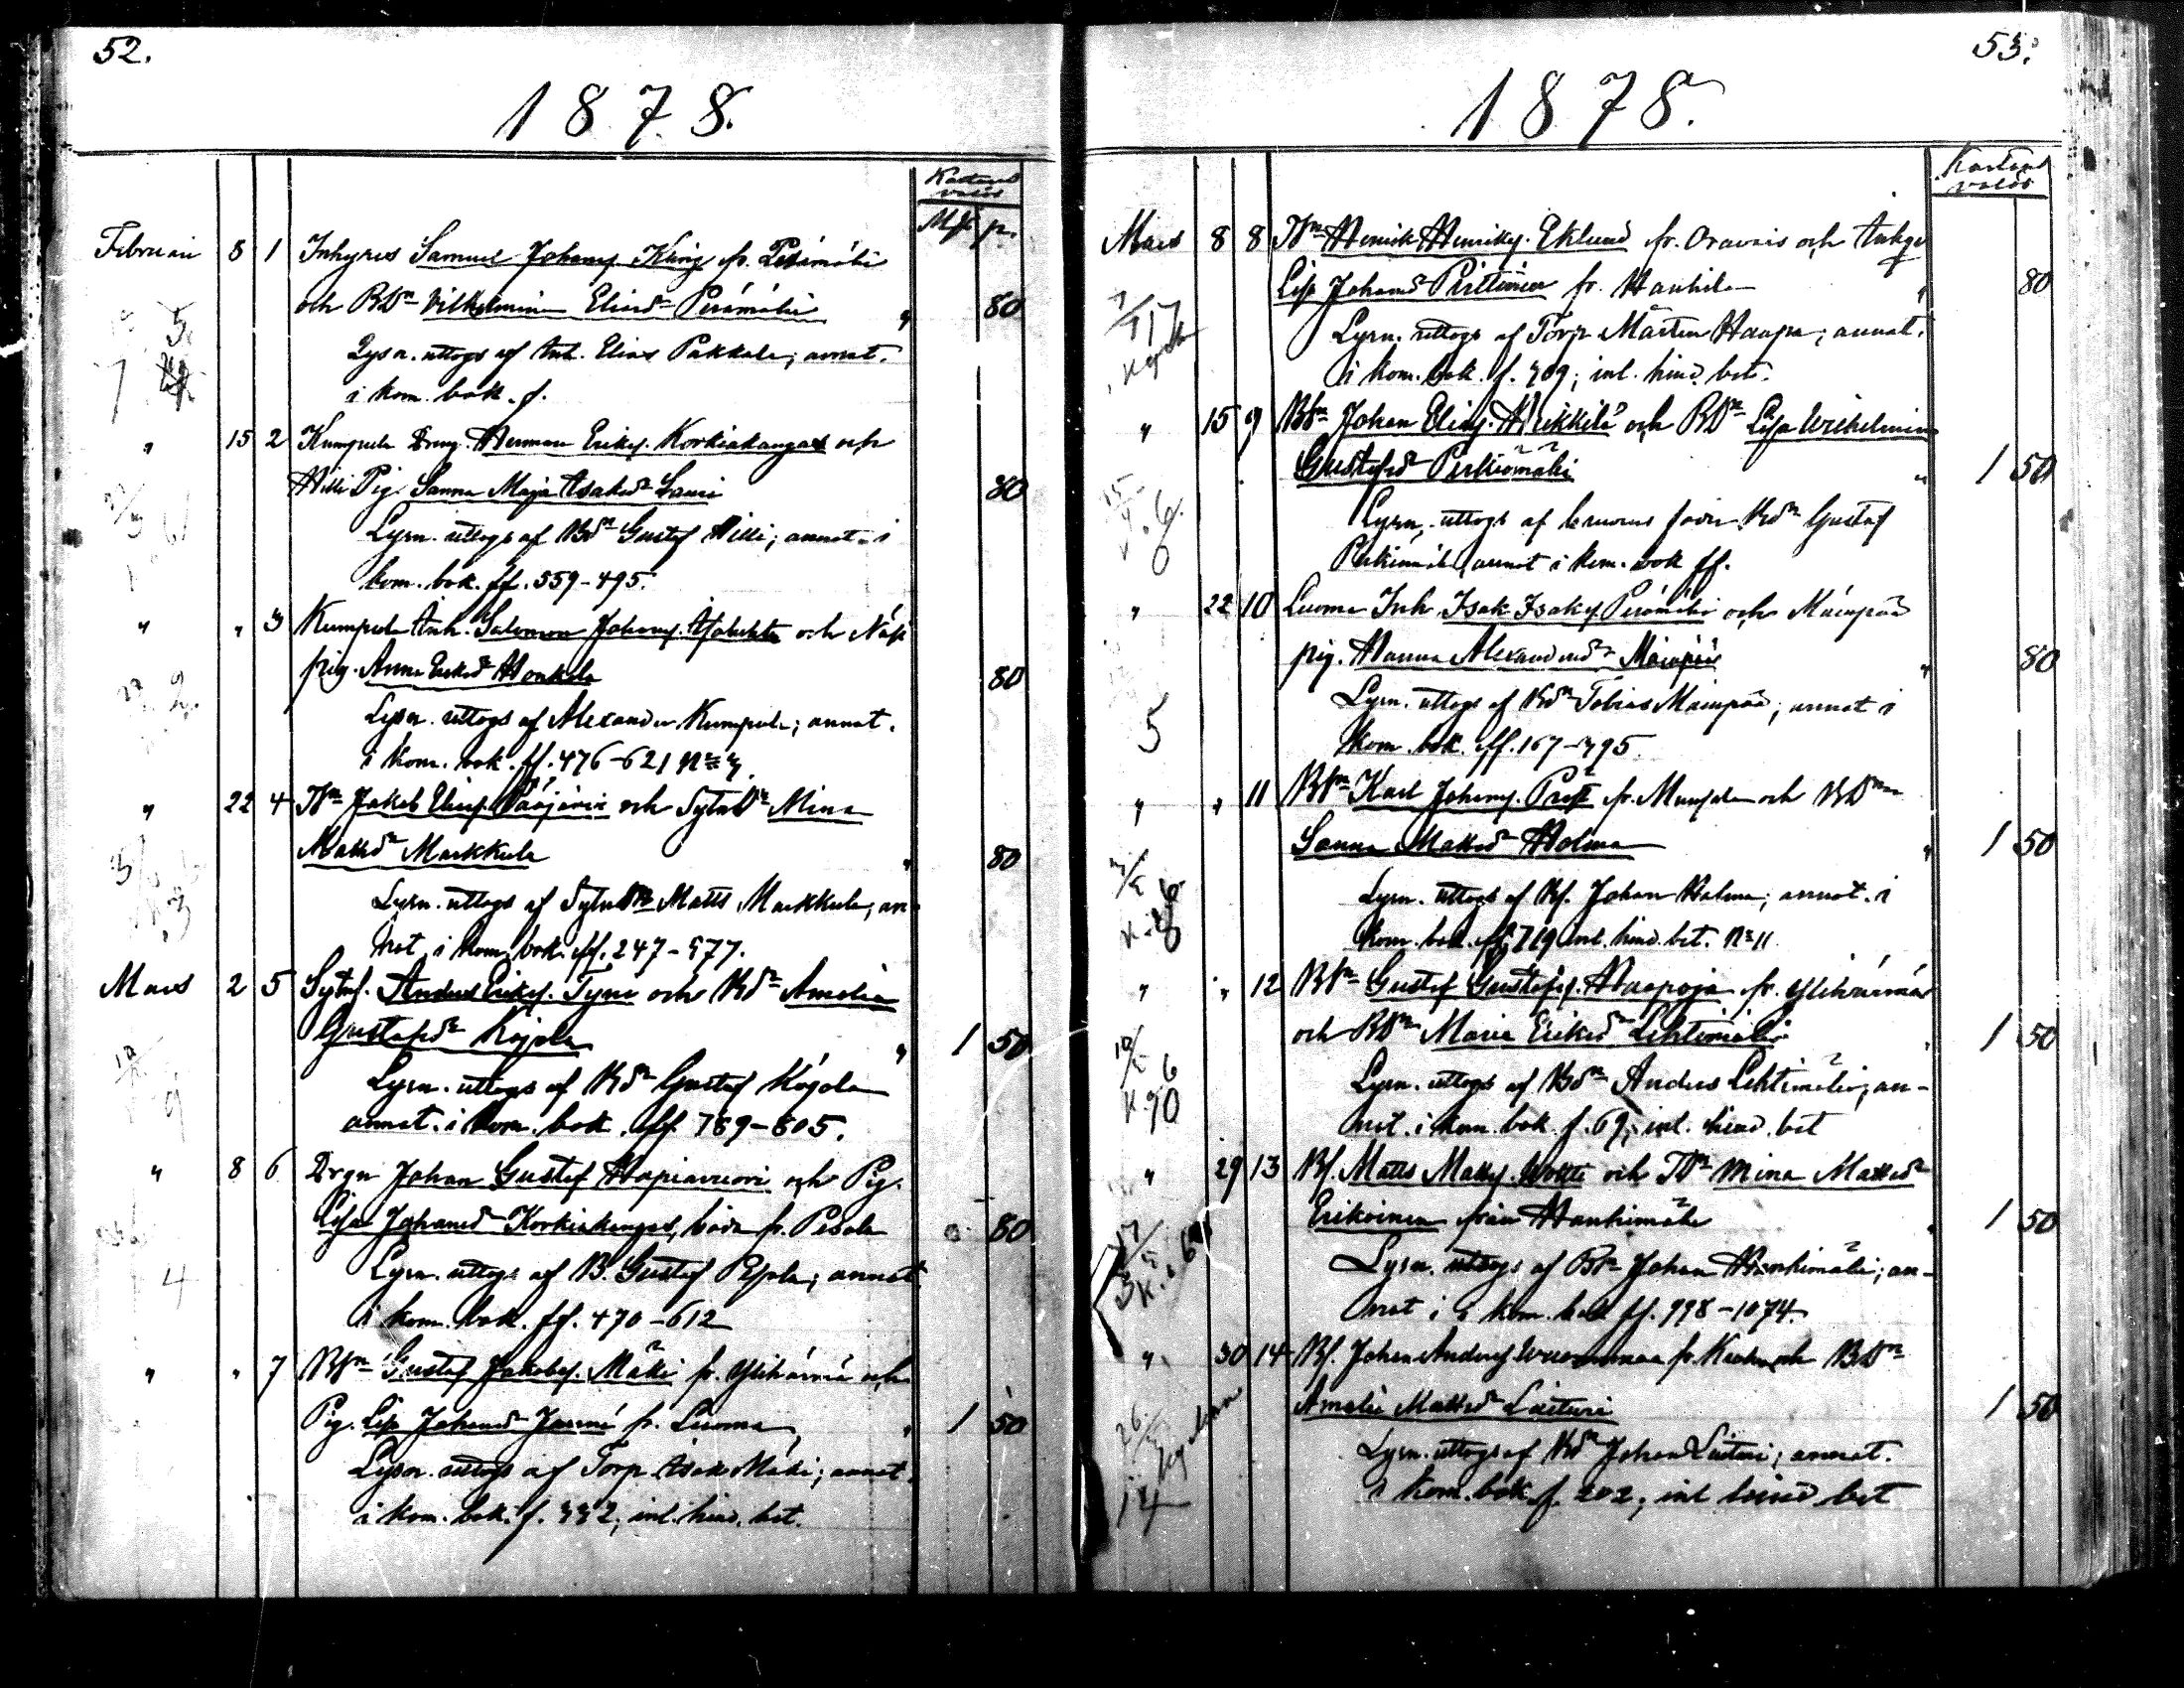 52.
1878.
Kartans
värde
Mk p.
Februari 8 1 Inhyses Samuel Johans. Kling fr. Perämäki
och BDn Vilhelmina Eliasdr Perämäki " 80
Lysn. uttogs af Inh. Elias Pakkala; annot.
i kom. bok. f.
" 15 2 Kumpula Dräng. Herman Eriks. Korkiakangas och
Hilli Pig. Sanna Maja Isaksdr Lauri 80
Lysn. uttogs af Bdn Gustaf Hilli; annot. i
kom. bok. ff. 559-495.
" " 3 Kumpula Inh. Salomon Johans. och
pig. Anna Eriksdr Honkala 80
Lysn. uttogs af Alexander Kumpula; annot.
i kom. bok. ff. 476-621 No 3.
" 22 4 Jakob Elias. Pääjärvi och Mina
Mattsdr Markkula " 80
Lysn. uttogs af Matts Markkula; an-
not. i kom. bok. ff. 247-577.
Mars 2 5 Sytnf. Anders Eriks. Tyni och Bdr Amalia
Gustafsdr Kojola " 1 50
Lysn. uttogs af Bdn Gustaf Kojola
annot. i kom. bok. ff. 789-805.
" 8 6 Drgn Johan Gustaf Hapiavuori och Pig.
Lisa Johansdr Korkiakangas, båda fr. Pesola 80
Lysn. uttogs af B. Gustaf Pesola; annot.
i kom. bok. ff. 470-612
" " 7 BSn Gustaf Jakobs. Mäki fr. Ylihärmä och
Pig. Lisa Johansdr fr. Luoma " 1 50
Lysn. uttogs af Torp. Isak Mäki; annot.
i kom. bok. f. 332; inl. hind. bet.
53.
1878.
Kartans
värde
Mars 8 8 Henrik Henriks. Eklund fr. Oravais och
Lisa Johansdr Pirttinen fr. Hanhila " 80
Lysn. uttogs af Torp. Mårten Haapa; annot.
i kom. bok. f. 709; inl. hind. bet.
" 15 9 BSn Johan Elias. Heikkilä och BDn Lisa Wilhelmina
Gustafsdr Perkiömäki " 1 50
Lysn. uttogs af brudens fader Bdn Gustaf
Perkiömäki, annot i kom. bok ff.
" 22 10 Luoma Inh. Isak Isaks. Perämäki och Mäenpää
pig. Sanna Alexandersdr Mäenpää " 80
Lysn. uttogs af Bdn Tobias Mäenpää; annot i
kom. bok. ff. 167-395.
" " 11 BSn Karl Johans. fr. Munsala och BDn
Sanna Mattsdr Holma " 1 50
Lysn. uttogs af Bf. Johan Holma; annot. i
kom. bok. ff. 719 inl. hind. bet. No 11.
" " 12 BSn Gustaf Gustafs. Haapoja fr. Ylihärmä
och BDn Maria Eriksdr Lehtimäki 1 50
Lysn. uttogs af Bdn Anders Lehtimäki; an-
not. i kom. bok. f. 69; inl. hind. bet
" 29 13 Bf. Matts Matts. Wotti och Mina Mattsdr
Erikoinen från Hanhimäki 1 50
Lysn. uttogs af Johan Hanhimäki; an-
not i kom. bok ff. 998-1074.
" 30 14 Bf. Johan Anders. fr. och BDn
Amalia Mattsdr Lasturi 1 50
Lysn. uttogs af Bdn Johan Lasturi; annot.
i kom. bok. f. 202; inl hind. bet